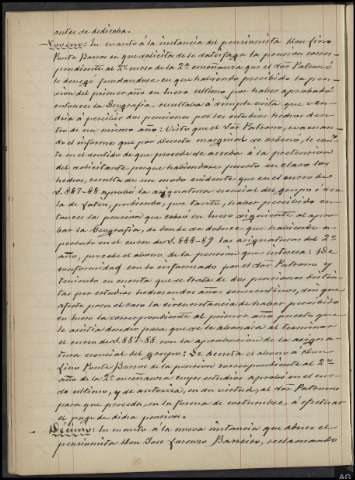 antes se dedicaba.
Noveno: En cuanto á la instancia del pensionista Don Lino
Ponte Barros en que solicita se le satisfaga la pension corres-
pondiente al 2º curso de la 2ª enseñanza que el Sor Patrono
le denegó fundandose en que habiendo percibido la pen-
sion del primer año en Enero ultimo por haber aprobado
entonces la Geografia, resultaba á simple vista que ven-
dria á percibir dos pensiones por los estudios hechos den-
tro de un mismo año: Visto que el Sor Patrono, evacuan-
do el informe que por decreto marginal se
en el sentido de que procede se acceda á la pretension
del solicitante porque habiendose puesto en claro los
hechos, resulta de un modo evidente que en el curso de
1.887-88 aprobó la asignatura esencial del grupo ó sea
la de Latin, pudiendo, por tanto, haber percibido en-
tonces la pension que cobró en Enero siguiente al apro-
bar la Geografia, de donde se deduce que habiendo a-
probado en el curso de 1.888-89 las asignaturas del 2º
año, procede el abono de la pension que interesa: De
conformidad con lo informado por el Sor Patrono y
teniendo en cuenta que se trata de dos pensiones distin-
tas por estudios hechos en dos años consecutivos, sin que
afecte para el caso la circunstancia de haber percibido
en Enero la correspondiente al primer año, puesto que
le asistia derecho para que se le abonara al terminar
el curso de 1.887-88 con la aprobacion de la asigna-
tura esencial del grupo: Se acuerda el abono a Don
Lino Ponte Barros de la pension correspondiente al 2º
año de la 2ª enseñanza cuyos estudios aprobó en el cur-
so ultimo, y se autoriza, en su virtud, al Sor Patrono
para que proceda, en la forma de costumbre, á efectuar
el pago de dicha pension.
Décimo: En cuanto á la nueva instancia que aduce el
pensionista Don José Lorenzo Barreiro, reclamando